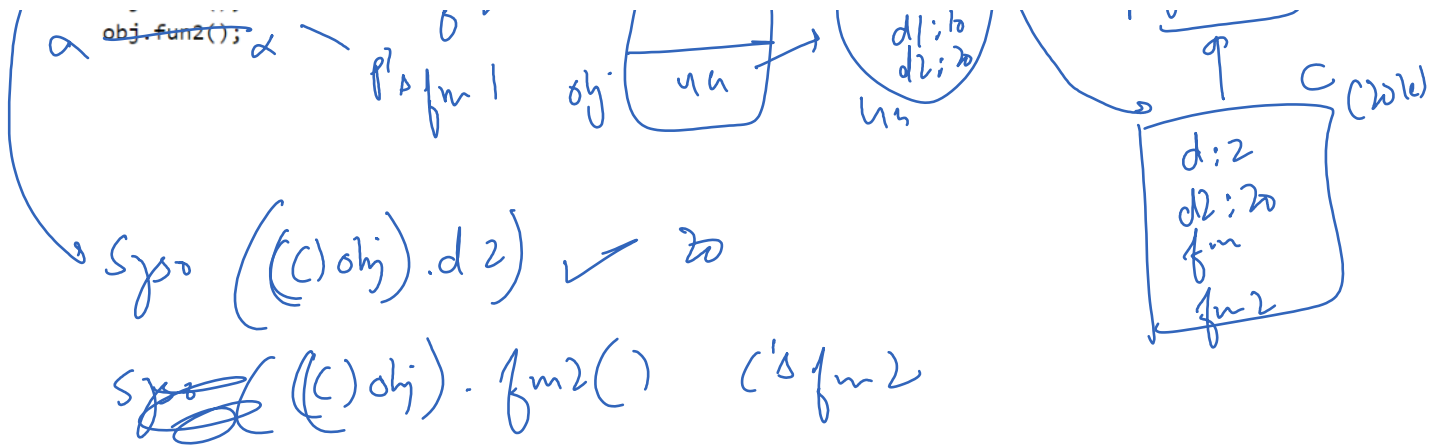 obj.fun2();
P's fun 1
obj
4k
d1:10
d2:20
4k
C (role)
d:2
d2:20
fun
fun2
Syso (((C)obj).d2) ✓ 20
((C)obj).fun2() C's fun2